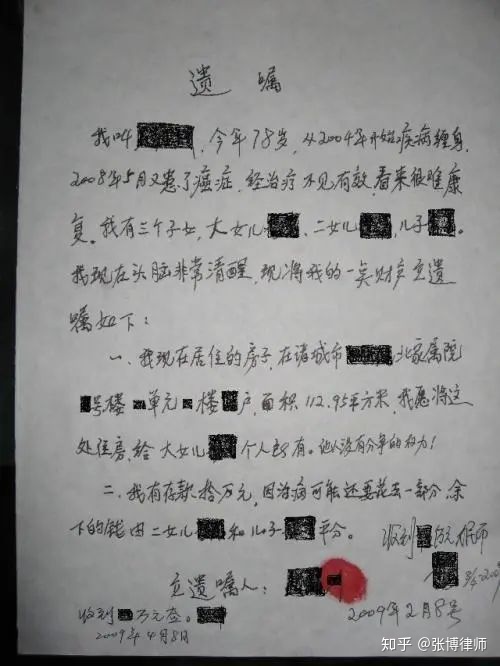 遗嘱
我叫，今年78岁，从2004年开始疾病缠身，
2008年5月又患了癌症，经治疗不见有效，看来很难康
复。我有三个子女，大女儿、二女儿、儿子。
我现在头脑非常清醒，现将我的一矣财产立遗
嘱如下：
一、我现在居住的房子，在诸城市北家属院
号楼单元楼户，面积112.95平方米，我愿将这
处住房，给大女儿个人所有。他人没有分争的权力！
二、我有存款拾万元，因治病可能还要花去一部分，余
下的钱由二女儿和儿子平分。
收到万元
立遗嘱人：
2009年2月8号
收到万元查。
2009年4月8日
知乎 @张博律师